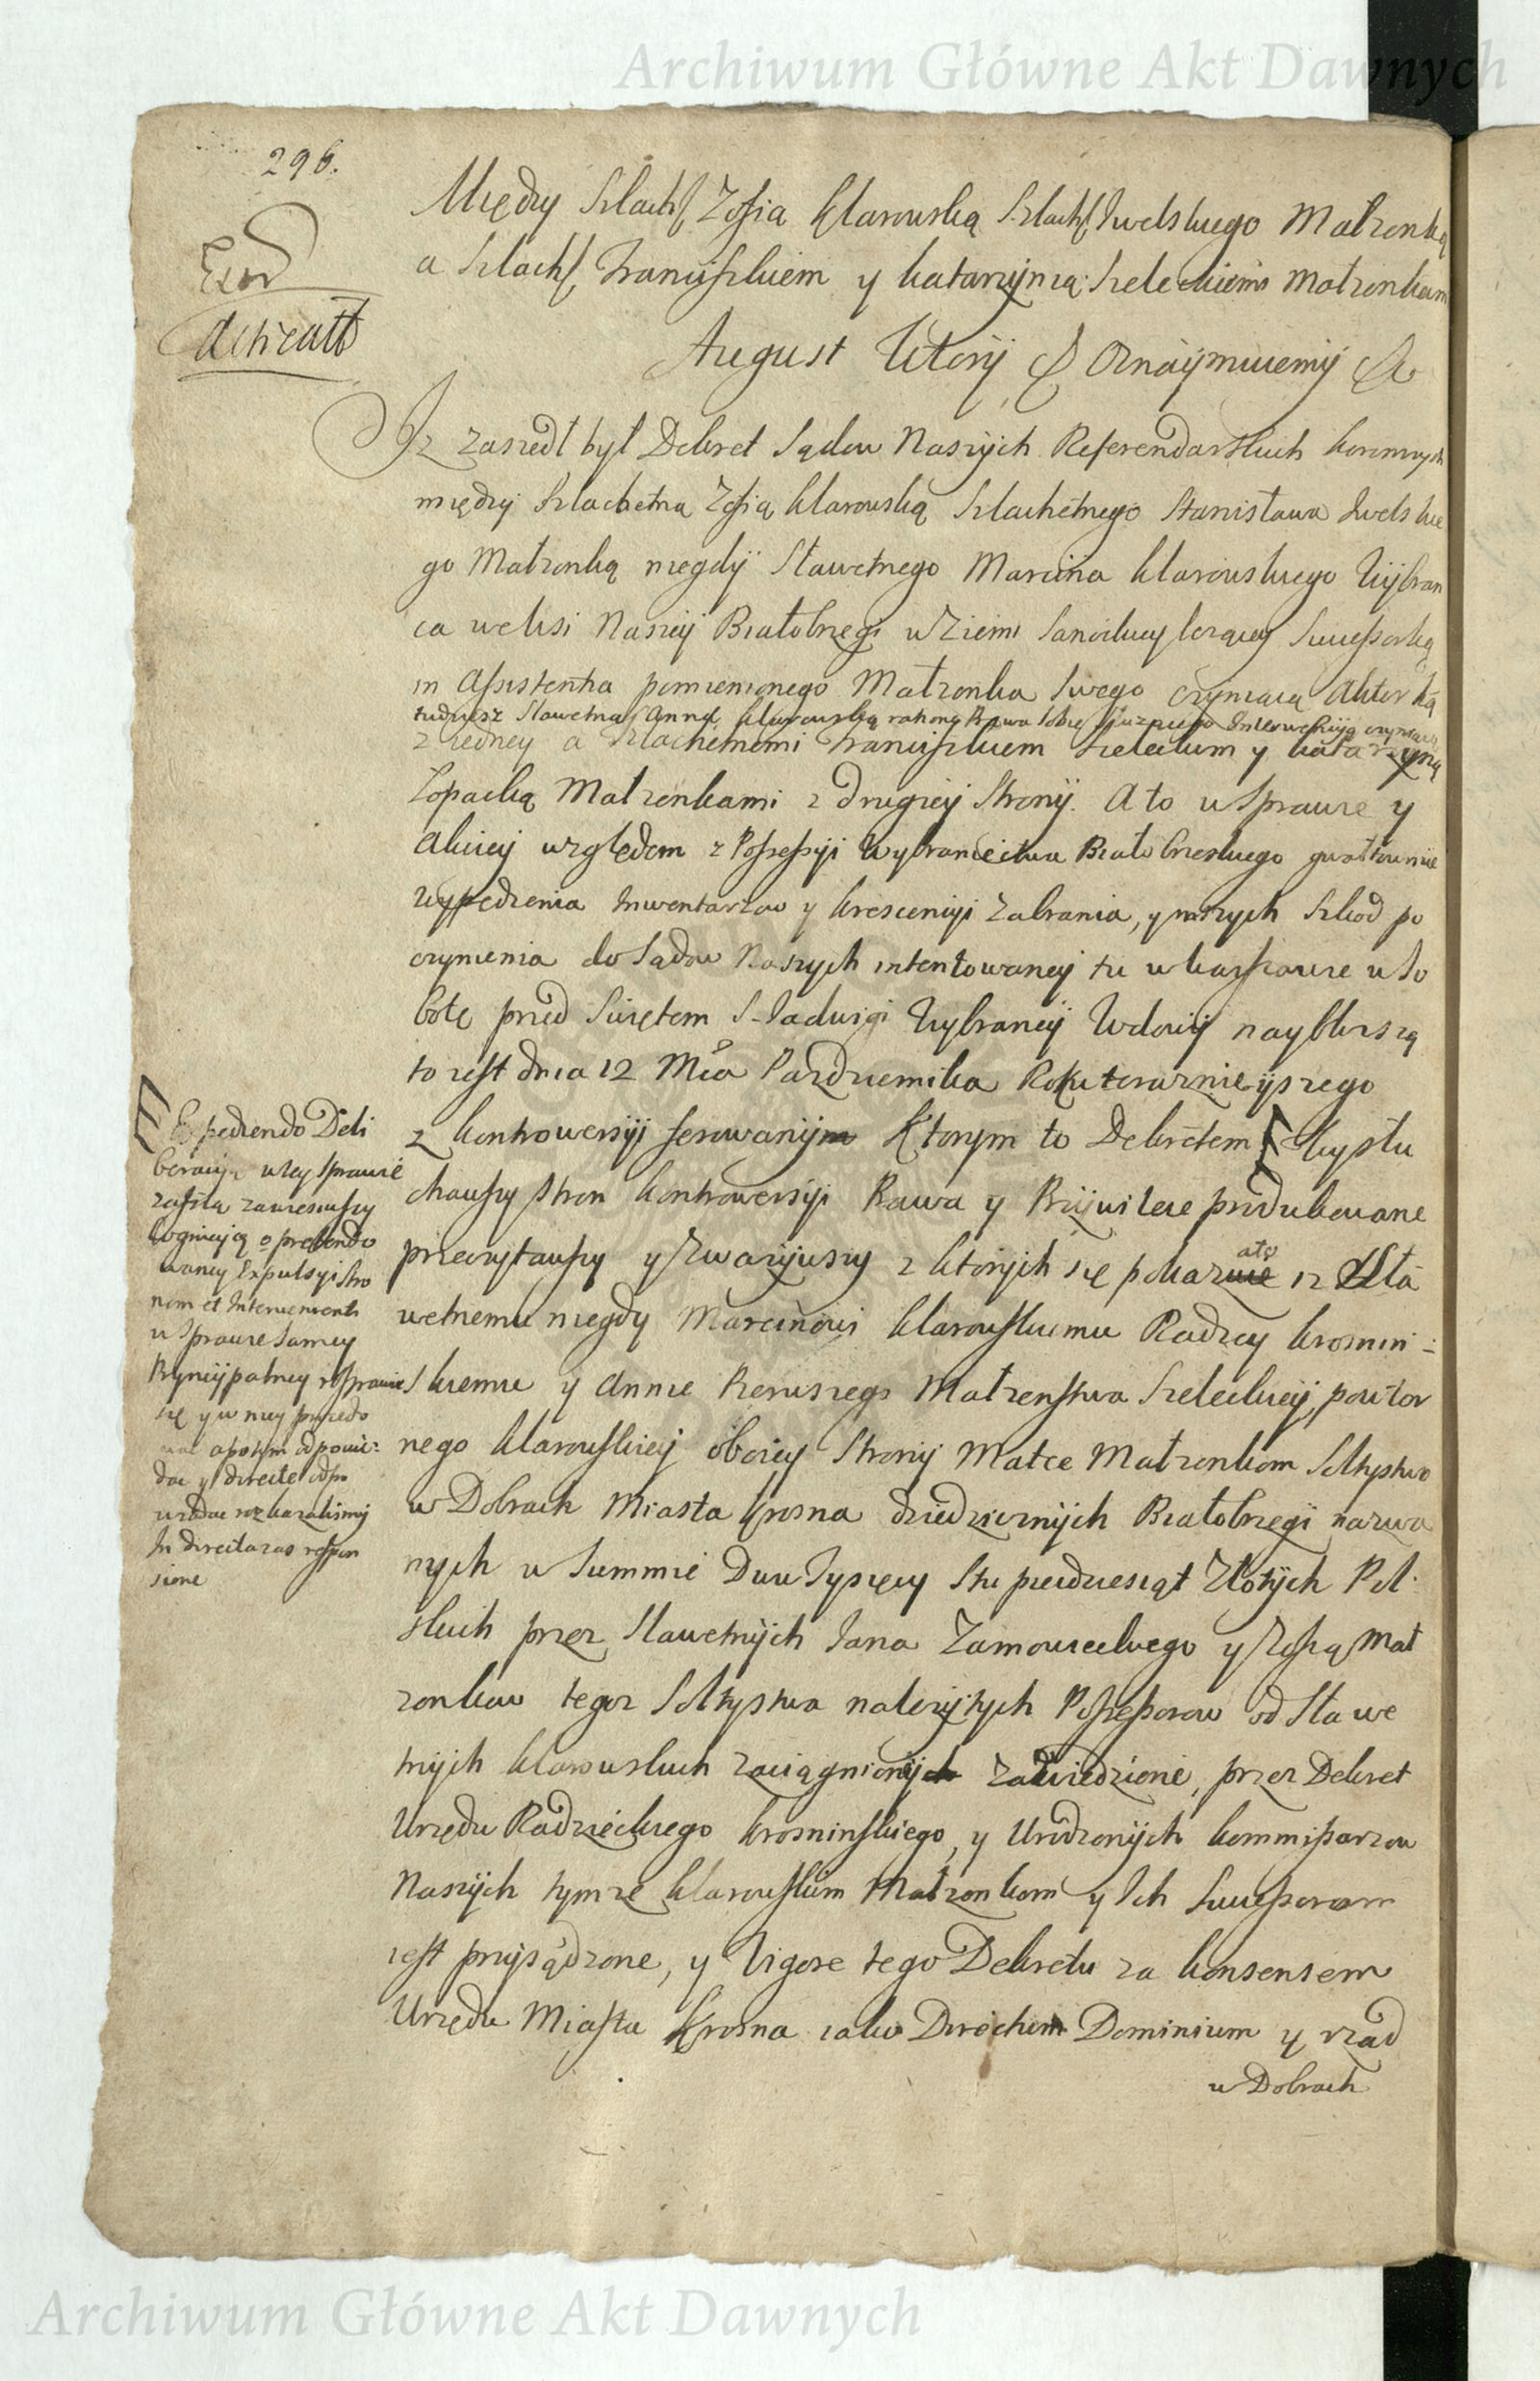 Archiwum Główne Akt Dawnych
296.
Między Szlach. Zofia Klarowską Szlach. Iwelskiego Małzonką
a Szlach. Franciszkiem y Katarzyną Szeleckiemi Małzonkam
August Wtory & Oznaymuiemy &
Iz zaszedł był Dekret Sądow Naszych Referendarskich koronnych
między Szlachetną Zofią Klarowską Szlachetnego Stanisława Iwelskie
go Małzonką niegdy Sławetnego Marcina Klarowskiego Wybran
ca we Wsi Naszey Białobrzegi w Ziemi Sanockiey lezącey Sukcessorką
in Assistentia pomienionego Małzonka Swego czyniącą Aktorką
tudziesz Sławetną Anną Klarowską rationę Prawa sobie słuzącego Interwencyą czyniącą
z iedney a Szlachetnemi Franciszkiem Szeleckim y Katarzyną
Łopacką Małzonkami z drugiey Strony. A to w Sprawie y
Akcyey względem z Possessyi Wybraniectwa Białobrzeskiego gwałtownie
wypędzenia Inwentarzow y krescencyi zabrania, y inszych Szkod po
czynienia do Sądow Naszych intentowaney tu w Warszawie w So
botę przed Swiętem S. Jadwigi Wybraney Wdowy naybliszą
to iest dnia 12 Mca Pazdziernika Roku teraznieyszego
z kontrowersyi ferowanym Ktorym to Dekretem Wysłu
chawszy Stron kontrowersyi Prawa y Przywileie produkowane
przeczytawszy y zwazywszy z ktorych się pokazało iz Sła
wetnemu niegdy Marcinowi Klarowskiemu Radzcy krosnin-
skiemu y Annie Pierwszego Małzenstwa Szeleckiey, powtor
nego Klarowskiey oboiey Strony Matce Małzonkom Sołtystwo
w Dobrach Miasta Krosna dziedzicznych Białobrzegi nazwa
nych w Summie Dwu Tysięcy Stu piędziesiąt Złotych Pol-
skich przez Sławetnych Jana Zamowieckiego y Zofią Mał
zonkow tegoz Sołtystwa nalezytych Possessorow od Sławe
tnych Klarowskich zaciągnioney zawiedzione, przez Dekret
Urzędu Radzieckiego krosninskiego, y Urodzonych kommissarzow
Naszych tymze Klarowskim Małzonkom y Ich Sukcessorom
iest przysądzone, y Vigore tego Dekretu za konsensem
Urzędu Miasta Krosna iako Dominium y rząd
w Dobrach
Expediendo Deli
beracyą w tey Sprawie
zaszłą zawiesiwszy
kognicyą o pretendo
waney Expulsyi Stro
nom et Intervenienti
w Sprawie Samey
Pryncypalney rosprawić
się y w niey
a potym odpowie-
dac y directe odpo
wiadac rozkazalismy
In directa zas respon
sione
Archiwum Główne Akt Dawnych